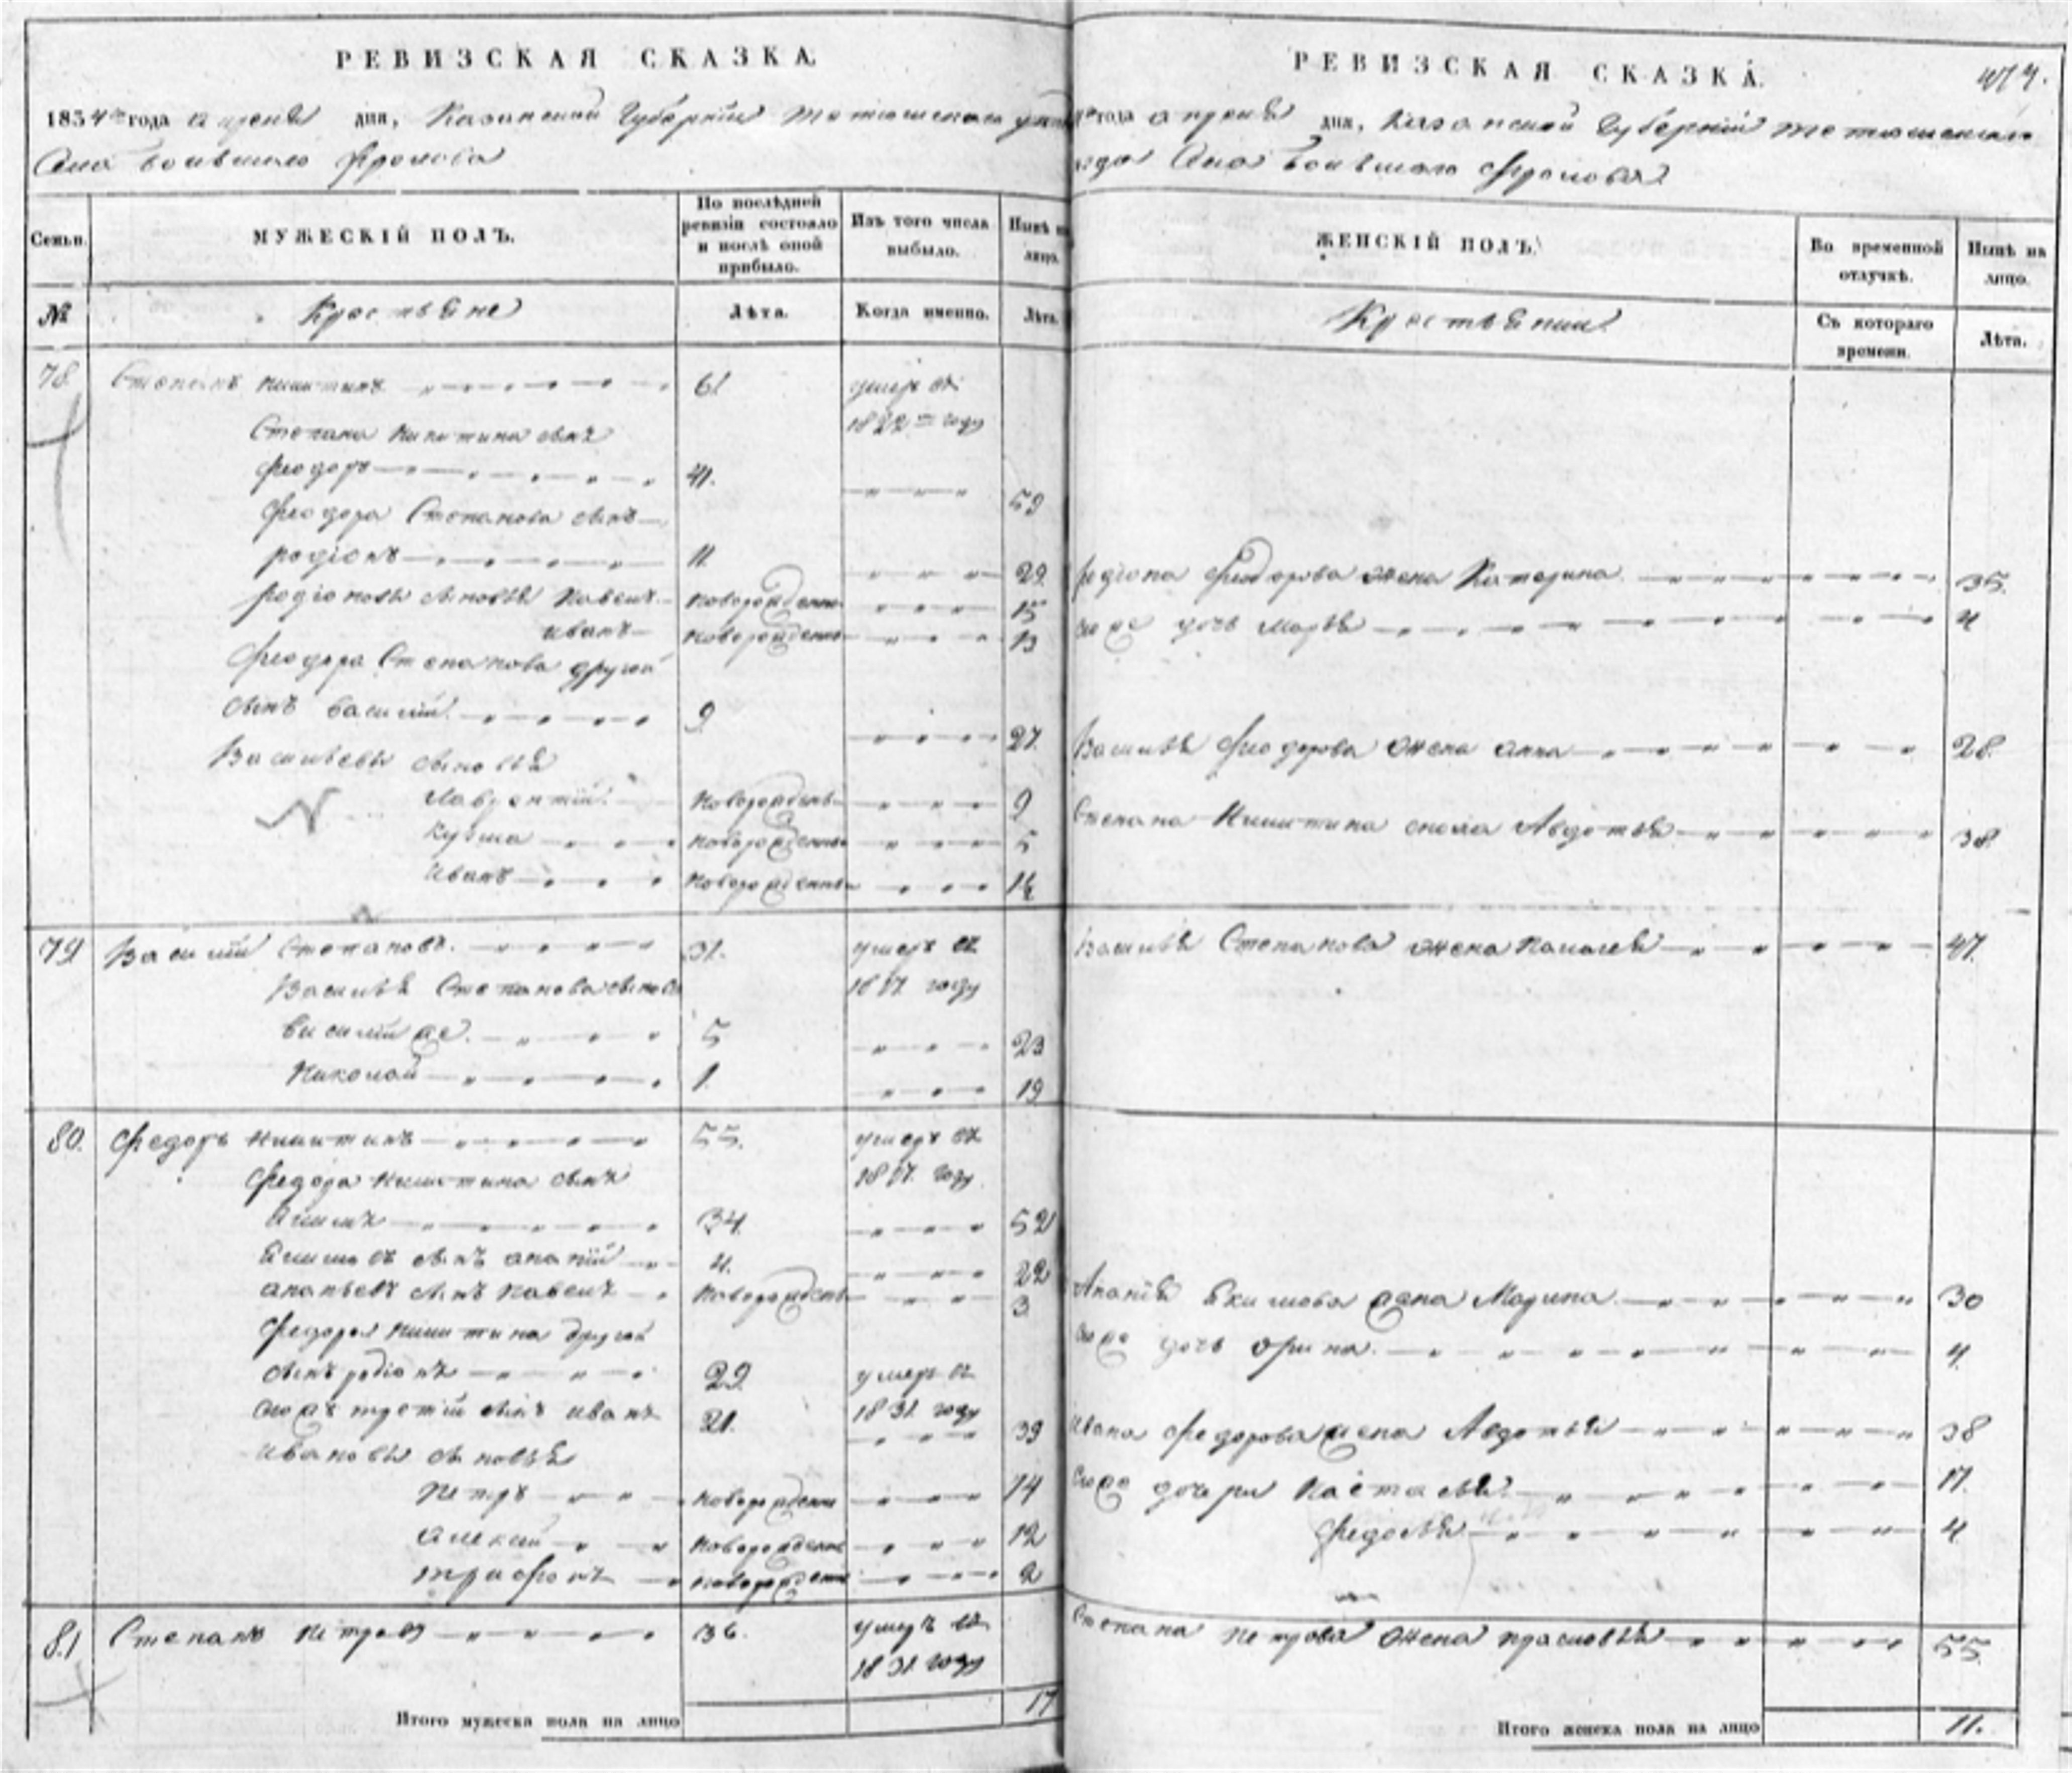 РЕВИЗСКАЯ СКАЗКА.
1834 года апреля дня, Казанской Губернiи Тетюшскаго
Села
МУЖЕСКІЙ ПОЛЪ.
Семьи.
По послѣдней ревизіи состояло и послѣ оной прибыло.
Изъ того числа выбыло.
Нынѣ на лицо.
№
Крестьяне
Лѣта.
Когда именно.
Лѣта.
78. Степанъ Никитинъ 61. умеръ въ
Степана Никитина сынъ 1822 году
Феодоръ 41. 59
Феодора Степанова сынъ
Родіонъ 11 29
Родіоновы сыновья Павелъ новорожденъ 15
Иванъ новорожденъ 13
Феодора Степанова другой
сынъ Василій 9 27.
Васильевы сыновья
Лаврентій новорожденъ 9
Кузма новорожденъ 5
Иванъ новорожденъ
79 Василій Степановъ. 31. умеръ въ
Василья Степанова сыновья году
Василій же. 5 23
Николай 1. 19
80. Федоръ Никитинъ 55. умеръ въ
Федора Никитина сынъ году
Якимъ 34. 52
Якимовъ сынъ Ананій 4. 22
Ананьевъ сынъ Павелъ новорожденъ 3
Федора Никитина другой
сынъ Родіонъ 29. умеръ въ
Егожъ третій сынъ Иванъ 21. 1831 году 39
Ивановы сыновья
Петръ новорожденъ 14
Алексей новорожденъ 12
Трифонъ новорожденъ 2
81 Степанъ Петровъ 36. умеръ въ
1831 году
Итого мужеска пола на лицо 17
РЕВИЗСКАЯ СКАЗКА.
года апреля дня, Казанской Губерніи Тетюшскаго
уезда Села
ЖЕНСКІЙ ПОЛЪ.
Во временной отлучкѣ.
Нынѣ на лицо.
Съ котораго времени.
Лѣта.
Родіона Феодорова жена Катерина 35.
его же дочь Марья 4
Василья Феодорова жена Анна 28.
Степана Никитина сноха Авдотья 38.
Василья Степанова жена Палагея 47.
Ананія Якимова жена Марина 30
его же дочь Орина. 4.
Ивана Федорова жена Авдотья 38
его же дочери Настасья 17.
Федосья 4
Степана Петрова жена Прасковья 55.
Итого женска пола на лицо 11.